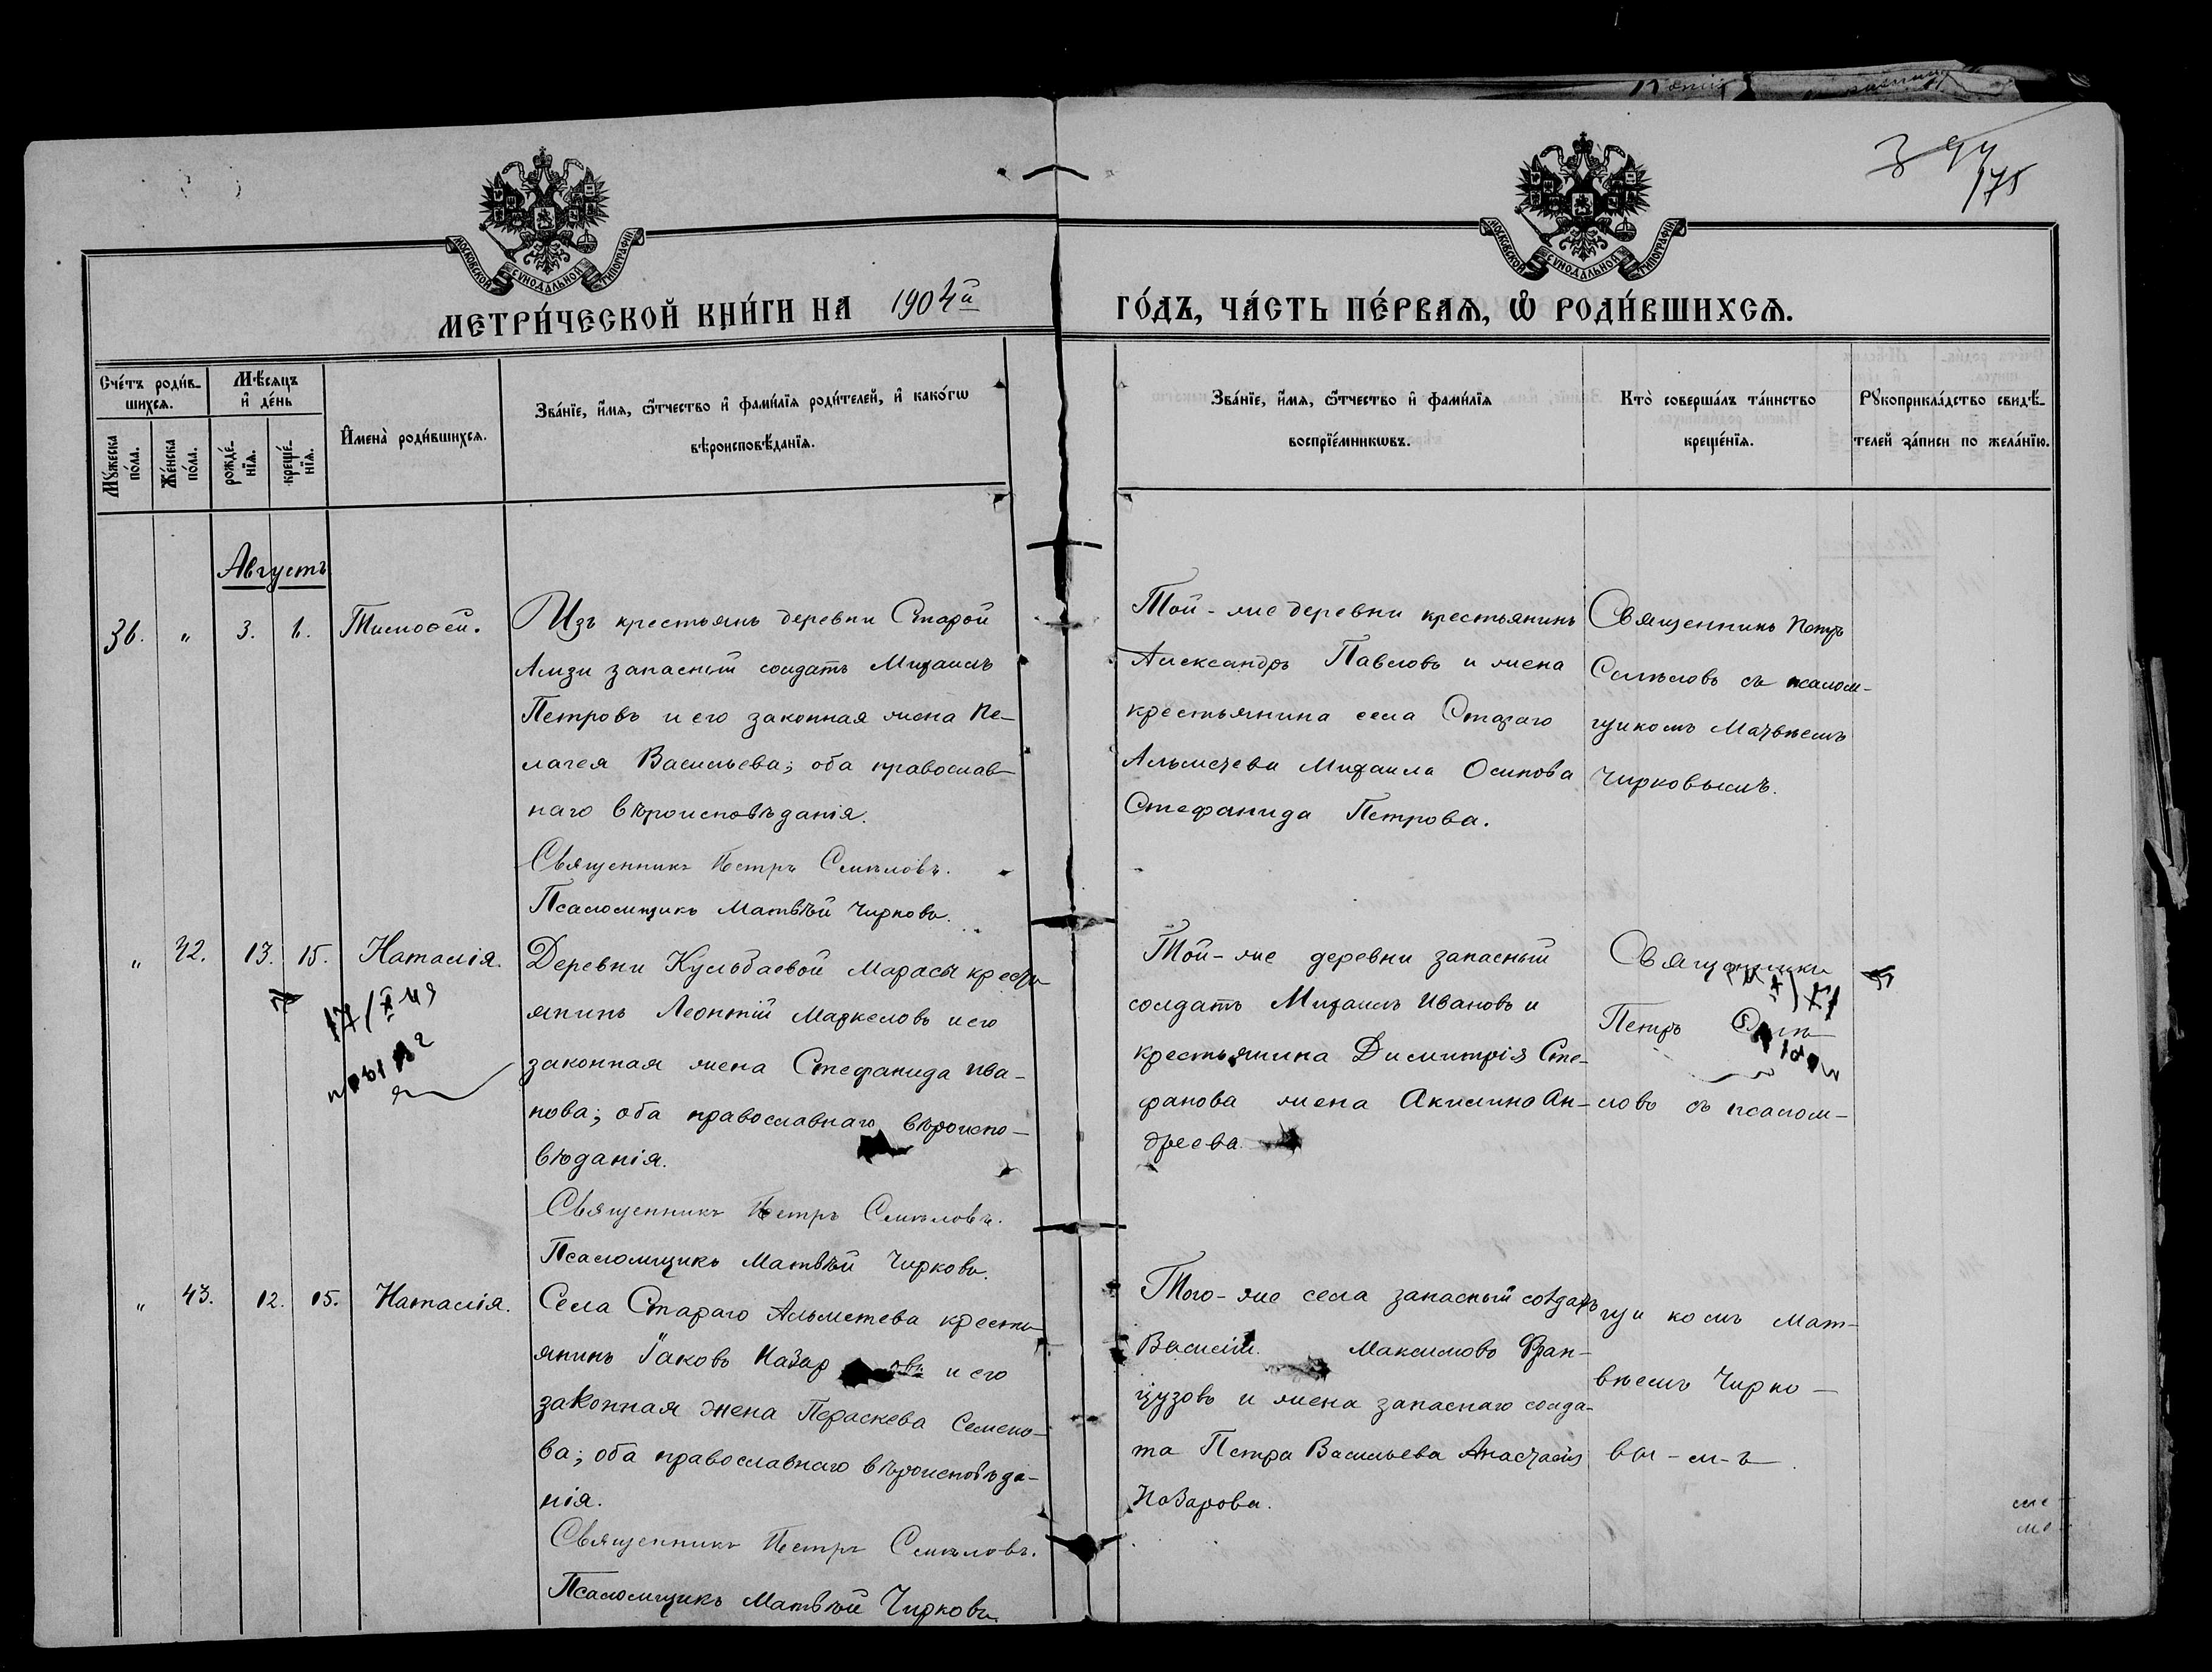 394
175
МОСКОВСКОЙ СѴНОДАЛЬНОЙ ТИПОГРАФІИ
МОСКОВСКОЙ СѴНОДАЛЬНОЙ ТИПОГРАФІИ
МЕТРИ́ЧЕСКОЙ КНИ́ГИ НА 1904й ГО́ДЪ, ЧА́СТЬ ПЕ́РВАѦ, Ѡ҆ РОДИ́ВШИХСѦ.
Сче́тъ роди́в-
шихсѧ.
Мꙋ́жеска
по́ла.
Же́нска
по́ла.
Мѣ́сѧцъ
и҆ де́нь
рожде́-
нїѧ.
креще́-
нїѧ.
И҆мена̀ роди́вшихсѧ.
Зва́нїе, и҆́мѧ, ѻ҆́тчество и҆ фами́лїѧ роди́телей, и҆ како́гѡ
вѣроисповѣ́данїѧ.
Зва́нїе, и҆́мѧ, ѻ҆́тчество и҆ фами́лїѧ
воспрїе́мникѡвъ.
Кто̀ соверша́лъ та́инство
креще́нїѧ.
Рꙋкоприкла́дство свидѣ́-
телей за́писи по жела́нїю.
Августъ
36. " 3. 6. Тимоѳей.
Изъ крестьянъ деревни Старой
Амзи запасный солдатъ Михаилъ
Петровъ и его законная жена Пе-
лагея Васильева; оба православ-
наго вѣроисповѣданія.
Священникъ Петръ Смѣловъ.
Псаломщикъ Матвѣй Чирковъ.
Той-же деревни крестьянинъ
Александръ Павловъ и жена
крестьянина села Стараго
Альметева Михаила Осипова
Стефанида Петрова.
Священникъ Петръ
Смѣловъ съ псалом-
щикомъ Матвѣемъ
Чирковымъ.
" 42. 13. 15. Наталія.
Деревни Кульбаевой Марасы кресть-
янинъ Леонтій Маркеловъ и его
законная жена Стефанида Ива-
нова; оба православнаго вѣроиспо-
вѣданія.
Священникъ Петръ Смѣловъ.
Псаломщикъ Матвѣй Чирковъ.
Той-же деревни запасный
солдатъ Михаилъ Ивановъ и
крестьянина Димитрія Сте-
фанова жена Акилина Ан-
дреева.
Священникъ
Петръ Смѣ-
ловъ съ псалом-
" 43. 12. 15. Наталія.
Села Стараго Альметева кресть-
янинъ Іаковъ Назаровъ и его
законная жена Параскева Семено-
ва; оба православнаго вѣроисповѣда-
нія.
Священникъ Петръ Смѣловъ.
Псаломщикъ Матвѣй Чирковъ.
Того-же села запасный солдатъ
Василій Максимовъ Фран-
цузовъ и жена запаснаго солда-
та Петра Васильева Анастасія
Назарова.
щикомъ Мат-
вѣемъ Чирко-
вы-м-ъ.